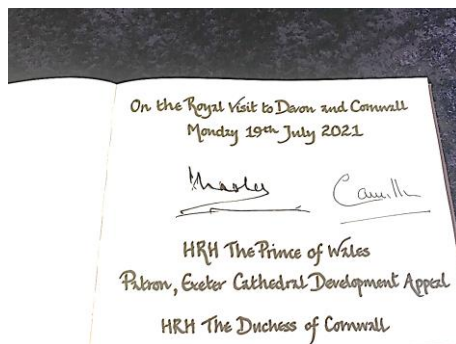 On the Royal Visit to Devon and Cornwall
Monday 19th July 2021
Charles Camilla
HRH The Prince of Wales
Patron, Exeter Cathedral Development Appeal
HRH The Duchess of Cornwall